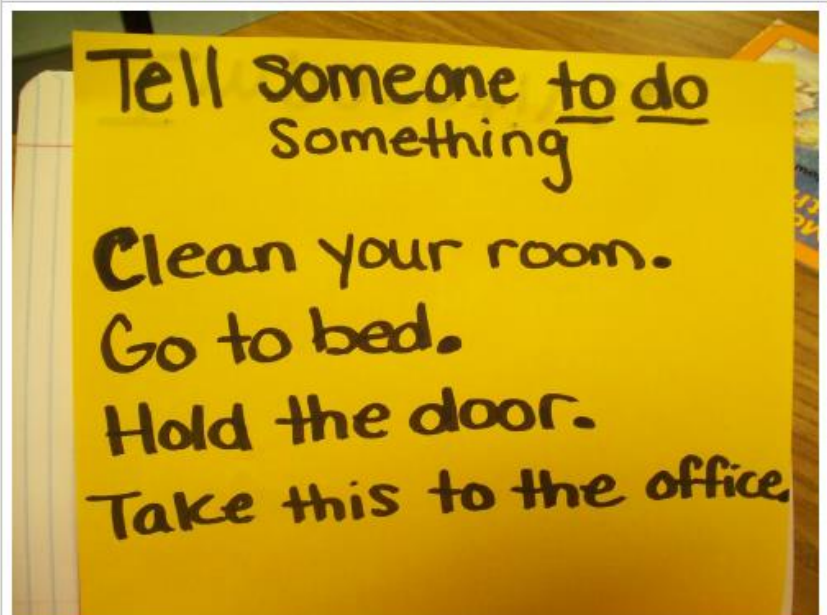 Tell someone to do
something
Clean your room.
Go to bed.
Hold the door.
Take this to the office.